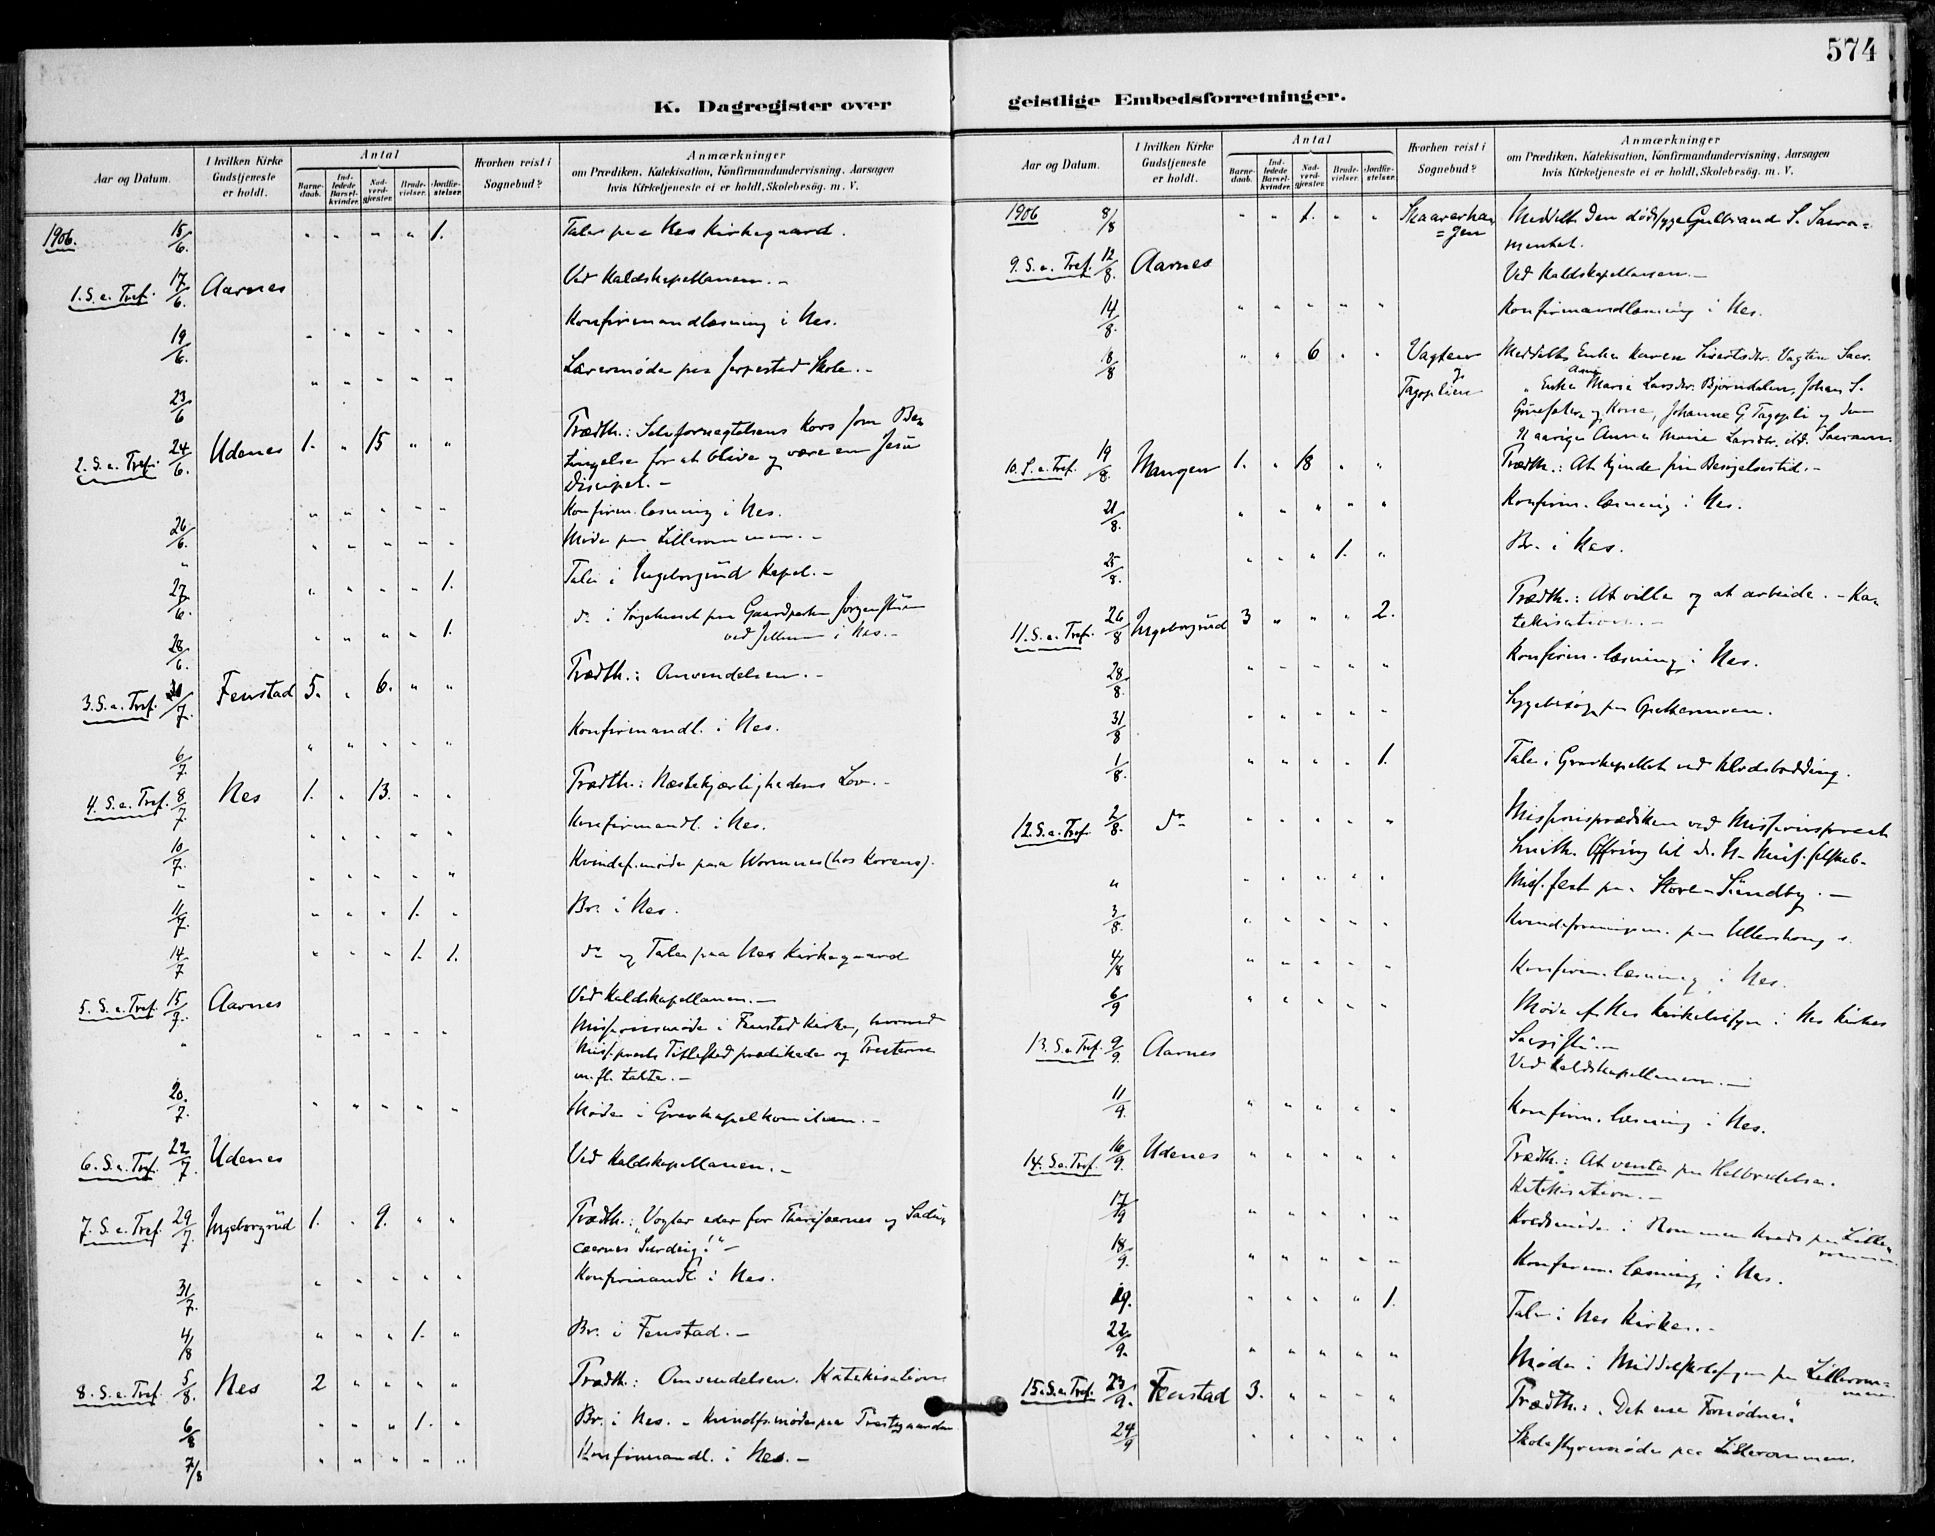 574
K. Dagregister over
geistlige Embedsforretninger.
Aar og Datum.
I hvilken Kirke Gudstjeneste er holdt.
Antal
Barnedaab.
Indledede Barselkvinder.
Nadverdgjester.
Brudevielser.
Jordfæstelser.
Hvorhen reist i Sognebud?
Anmærkninger
om Prædiken, Katekisation, Konfirmandundervisning, Aarsagen
hvis Kirketjeneste ei er holdt, Skolebesøg. m. V.
1906. 15/6. " " " " 1. Tale paa Nes Kirkegaard.
1. S. e. Tref. 17/6. Aarnes Ved Kaldskapellanen. -
19/6. " " " " " Konfirmandlæsning i Nes.
23/6 " " " " " Lærermøde paa Skole. -
2. S. e. Tref. 24/6. Udenes 1. " 15 " " Prædth.: Selvfornægtelsens Kors som Be=
tingelse for at blive og være en Jesu
Discipel. -
26/6. " " " " " Konfirm. læsning i Nes.
" " " " " " Møde paa Lillerommen. -
27/6. " " " " 1. Tale i Ingeborgrud Kapel. -
28/6. " " " " 1. do i Sørgehuset paa
i Nes. -
3. S. e. Tref. /7. Fenstad 5. " 6. " " Prædth.: Omvendelsen. -
6/7. " " " " " Konfirmandl. i Nes.
4. S. e. Tref. 8/7 Nes 1. " 13. " " Prædth.: Næstekjærlighedens Lov. -
10/7. " " " " " Konfirmandl. i Nes.
" " " " " " Kvindef.møde paa Wormnes (hos Korens).
11/7. " " " 1. " Br. i Nes.
14/7 " " " 1. 1. do og Tale paa Nes Kirkegaard
5. S. e. Tref. 15/7. Aarnes Ved Kaldskapellanen. -
" " " " " " Missionsmøde i Fenstad Kirke, hvorved
Miss.prest prædikede og Presterne
m. fl. talte. -
20./7. " " " " " Møde i Gravkapelkomiteen. -
6. S. e. Tref. 22/7. Udenes Ved Kaldskapellanen. -
7. S. e. Tref. 29/7. Ingeborgrud 1. " 9. " " Prædth.: "Vogter eder for Farisæernes og Sadu=
cæernes Surdeig!" -
31/7. " " " " " Konfirmandl. i Nes.
4/8 " " " 1. " Br. i Fenstad. -
8. S. e. Tref. 5/8. Nes 2 " " " " Prædth.: Omvendelsen. Katekisation
6/8 " " " 1. " Br. i Nes. - Kvindfs.møde paa Prestegaarden
7/8 " " " " " Konfirmandl. i Nes. -
Aar og Datum.
I hvilken Kirke Gudstjeneste er holdt.
Antal
Barnedaab.
Indledede Barselkvinder.
Nadverdgjester.
Brudevielser.
Jordfæstelser.
Hvorhen reist i Sognebud?
Anmærkninger
om Prædiken, Katekisation, Konfirmandundervisning, Aarsagen
hvis Kirketjeneste ei er holdt, Skolebesøg. m. V.
1906 8/8 " " 1. " " Skaarerha=
=gen Meddelt den dødssyge Gulbrand S. Sacra=
mentet.
9. S. e. Tref. 12/8. Aarnes Ved Kaldskapellanen. -
14/8. " " " " " Konfirmandlæsning i Nes.
/8 " " 6 " " Vagten
og
Tagoplien
Meddelt Enke Karen Vagten Sacr.
" Enke Marie Larsdtr. Bjørndalen, Johan S.
og Kone, Johanne G. Tagopli og den
aarige Anna Marie
10. S. e. Tref. 19/8. Mangen 1. " 18 " " Prædth.: At kjende sin Besøgelsestid. -
21/8. " " " " " Konfirm. læsning i Nes.
25/8. " " " 1. " Br. i Nes.
11. S. e. Tref. 26/8 Ingeborgrud 3 " " " 2. Prædth.: At ville og at arbeide. - Ka=
tekisation. -
28/8. " " " " " Konfirm. læsning i Nes.
31/8 " " " " " Sygebesøg paa
1/8. " " " " 1. Tale i Gravkapellet ved
12. S. e. Tref. 2/8. do " " " " " Missionsprædiken ved Missionsprest
Smith. Offring til d. N. Miss.selskab. -
" " " " " " Miss.fest paa Store-Sundby. -
3/8. " " " " " Kvindeforeningsm. paa
4/8 " " " " " Konfirm. læsning i Nes.
6/9 " " " " " Møde af Nes Kirketilsyn i Nes Kirkes
Sacristi. -
13. S. e. Tref. 9/9. Aarnes Ved Kaldskapellanen. -
11/9. " " " " " Konfirm. læsning i Nes.
14. S. e. Tref. 16/9. Udenes " " " " " Prædth.: At vente paa Helbredelse.
Katekisation. -
17/9 " " " " " Kredsmøde i Rommen Kreds paa Lille=
rommen.
18/9. " " " " " Konfirm. læsning i Nes.
19. " " " " 1. Tale i Nes Kirke. -
22/9. " " " " " Møde i Middelskoletilsyn paa Lillerom=
men.
15. S. e. Tref. 23/9. Fenstad 3. " " " " Prædth.: "Det ene Fornødne."
24/9 " " " " " Skolestyremøde paa Lillerommen.